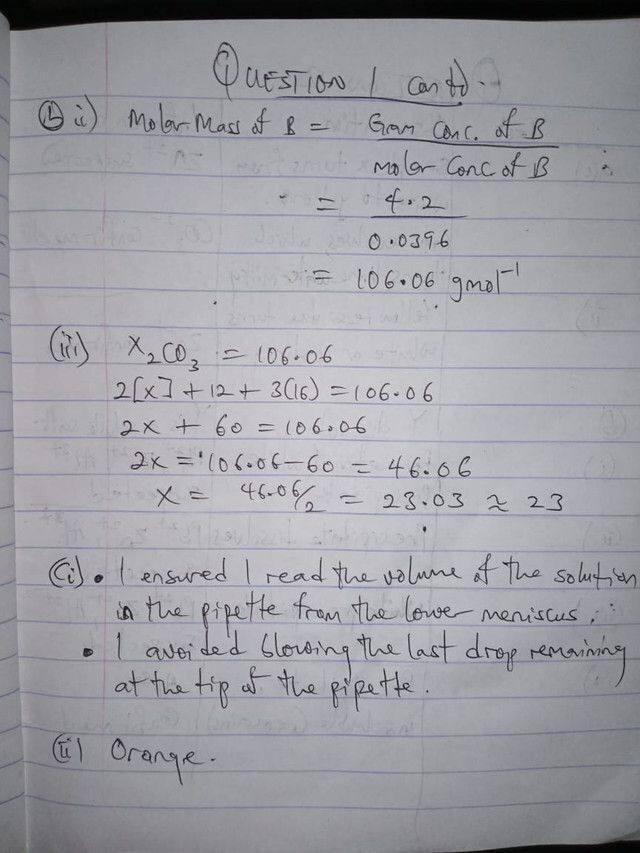 QUESTION 1 contd.
(b) ii) Molar Mass of B = Gram Conc. of B
Molar Conc of B
= 4.2
0.0396
= 106.06 gmol⁻¹
(iii) X₂CO₃ = 106.06
2[x] + 12 + 3(16) = 106.06
2x + 60 = 106.06
2x = 106.06 - 60 = 46.06
x = 46.06/2 = 23.03 ≈ 23
(ci) • I ensured I read the volume of the solution
in the pipette from the lower meniscus.
• I avoided blowing the last drop remaining
at the tip of the pipette.
(ii) Orange.